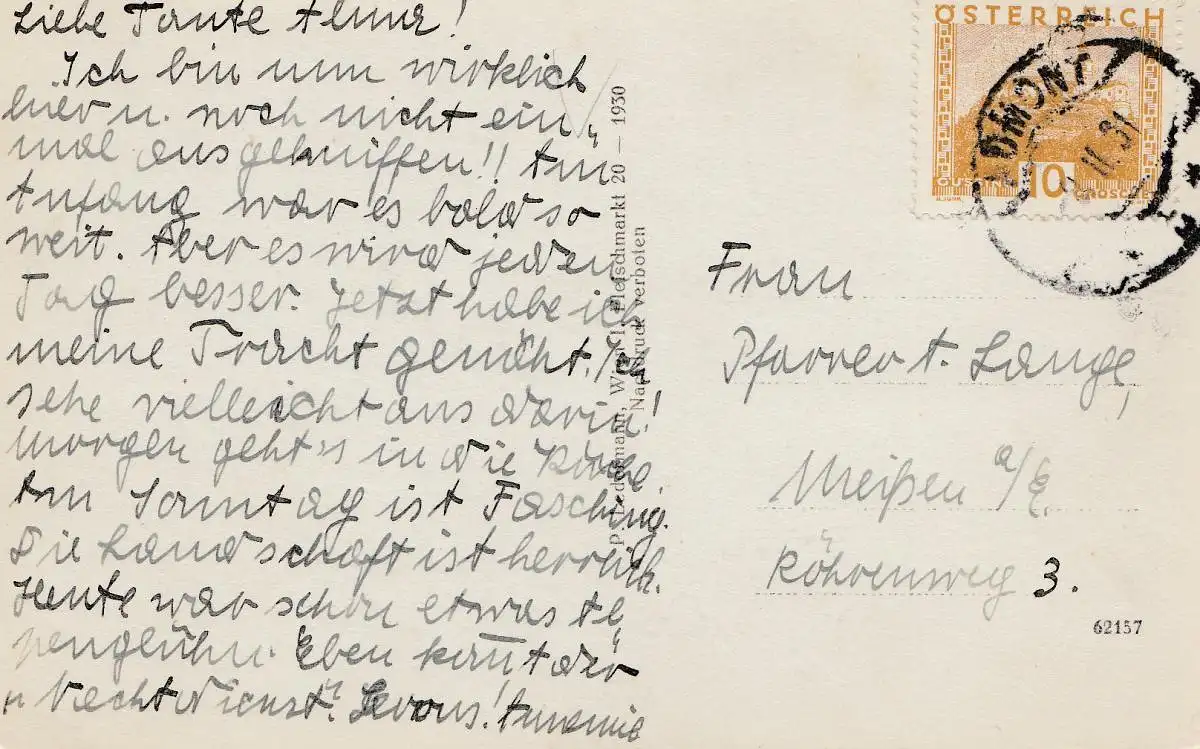 Liebe Tante Anna!
Ich bin nun wirklich
hier u. noch nicht ein„
mal ausgekniffen!! Am
Anfang war es bald so
weit. Aber es wird jeden
Tag besser. Jetzt habe ich
meine Tracht genäht. Ich
sehe vielleicht aus darin!
Morgen geht's in die Küche.
Am Sonntag ist Fasching.
Die Landschaft ist herrlich.
Heute war schon etwas Al„
penglühn. Eben kommt der
„Nachtdienst". Heraus! Annemie
P. Ledermann, Wien I, Fleischmarkt 20 — 1930
Nachdruck verboten
ÖSTERREICH
10
GROSCHEN
ADMONT
II. 31
Frau
Pfarrer A. Lange,
Meißen a/E.
Röhrenweg 3.
62157